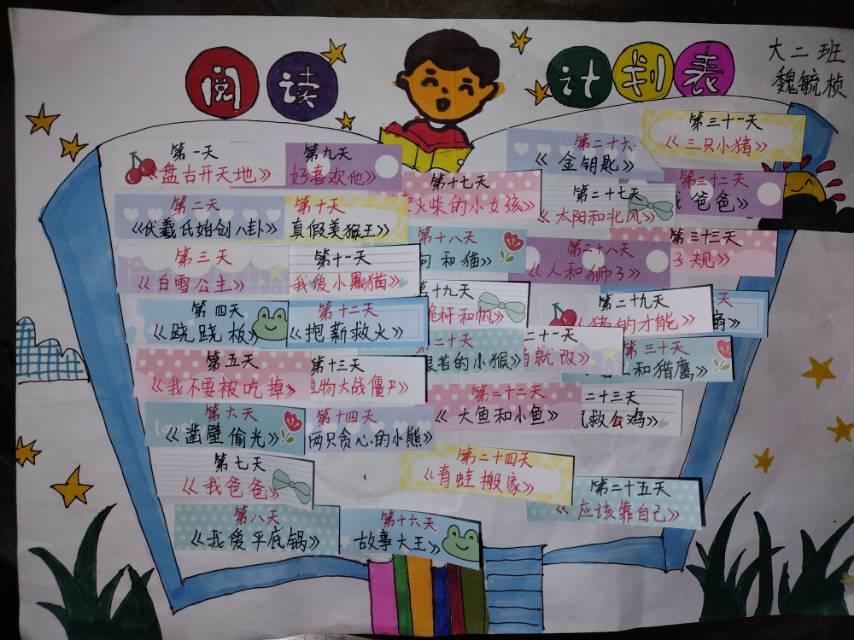 阅读计划表
大二班
魏毓桢
第一天
《盘古开天地》
第二天
《伏羲氏始创八卦》
第三天
《白雪公主》
第四天
《跷跷板》
第五天
《我不要被吃掉》
第六天
《凿壁偷光》
第七天
《我爸爸》
第八天
《我爱平底锅》
第九天
好喜欢他》
第十天
真假美猴王》
第十一天
我爱小黑猫》
第十二天
《抱薪救火》
第十三天
植物大战僵尸》
第十四天
两只贪心的小熊》
第十六天
故事大王》
第十七天
火柴的小女孩》
第十八天
和猫》
第十九天
桅杆和帆》
二十天
的小猴》
二十一天
就改》
第二十二天
《大鱼和小鱼》
二十三天
救公鸡》
第二十四天
《青蛙搬家》
第二十五天
《应该靠自己》
第二十六
《金钥匙》
第二十七天
《太阳和北风》
第二十八天
《人和狮子》
第二十九天
猪的才能》
第三十天
和猎鹰》
第三十一天
《三只小猪》
第三十二天
爸爸》
第三十三天
子规》